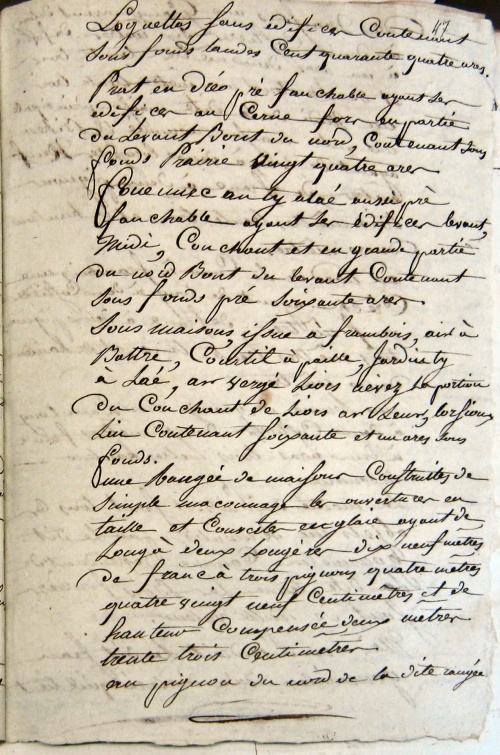 47
Loquettes sans édifices Contenant
sous fonds landes Cent quarante quatre ares.
Prat en dréo pré fauchable ayant ses
édifices au Cerne fors en partie
du Levant Bout du nord, Contenant sous
fonds Prairie vingt quatre ares
foue aussi pré
fauchable ayant ses édifices levant,
Midi, Couchant et en grande partie
du nord Bout du levant Contenant
sous fonds pré soixante ares
Sous maisons, issue a frambois, air à
Battre, Courtil a paille, Jardin ty
à Laé, ar vergé Liors nevez la portion
du Couchant de Liors ar Leur, Lorsiou
Lin Contenant soixante et un ares sous
fonds.
une Rangée de maisons Construites de
simple maconnage les ouvertures en
taille et Couvertes englaie ayant de
Long à deux Longères dix neuf mètres
de franc à trois pignons quatre mètres
quatre vingt neuf Centimètres et de
hauteur Compensée deux mètres
trente trois Centimètres
au pignon du nord de la dite rangée